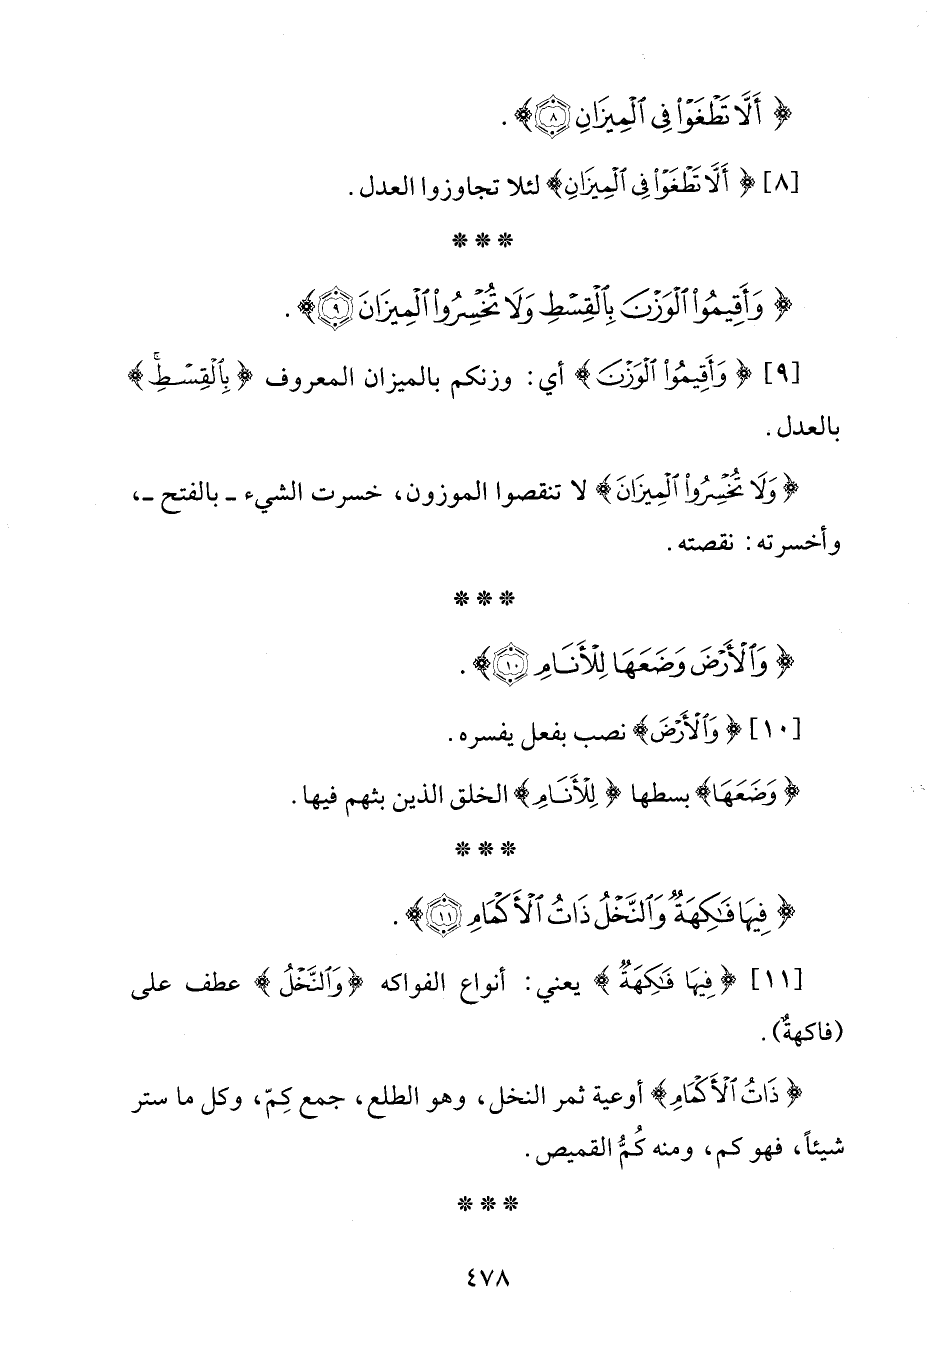 ﴿ أَلَّا تَطْغَوْا۟ فِى ٱلْمِيزَانِ ٨﴾ .
[٨] ﴿ أَلَّا تَطْغَوْا۟ فِى ٱلْمِيزَانِ﴾ لئلا تجاوزوا العدل.
***
﴿ وَأَقِيمُوا۟ ٱلْوَزْنَ بِٱلْقِسْطِ وَلَا تُخْسِرُوا۟ ٱلْمِيزَانَ ٩﴾ .
[٩] ﴿ وَأَقِيمُوا۟ ٱلْوَزْنَ ﴾ أي: وزنكم بالميزان المعروف ﴿ بِٱلْقِسْطِۚ ﴾
بالعدل.
﴿ وَلَا تُخْسِرُوا۟ ٱلْمِيزَانَ﴾ لا تنقصوا الموزون، خسرت الشيء - بالفتح -،
وأخسرته: نقصته.
***
﴿ وَٱلْأَرْضَ وَضَعَهَا لِلْأَنَامِ ١٠﴾ .
[١٠] ﴿ وَٱلْأَرْضَ﴾ نصب بفعل يفسره.
﴿ وَضَعَهَا﴾ بسطها ﴿ لِلْأَنَامِ﴾ الخلق الذين بثهم فيها.
***
﴿ فِيهَا فَٰكِهَةٌ وَٱلنَّخْلُ ذَاتُ ٱلْأَكْمَامِ ١١﴾ .
[١١] ﴿ فِيهَا فَٰكِهَةٌ ﴾ يعني: أنواع الفواكه ﴿ وَٱلنَّخْلُ ﴾ عطف على
(فاكهةٌ).
﴿ ذَاتُ ٱلْأَكْمَامِ﴾ أوعية ثمر النخل، وهو الطلع، جمع كِمّ، وكل ما ستر
شيئاً، فهو كم، ومنه كُمُّ القميص.
***
٤٧٨